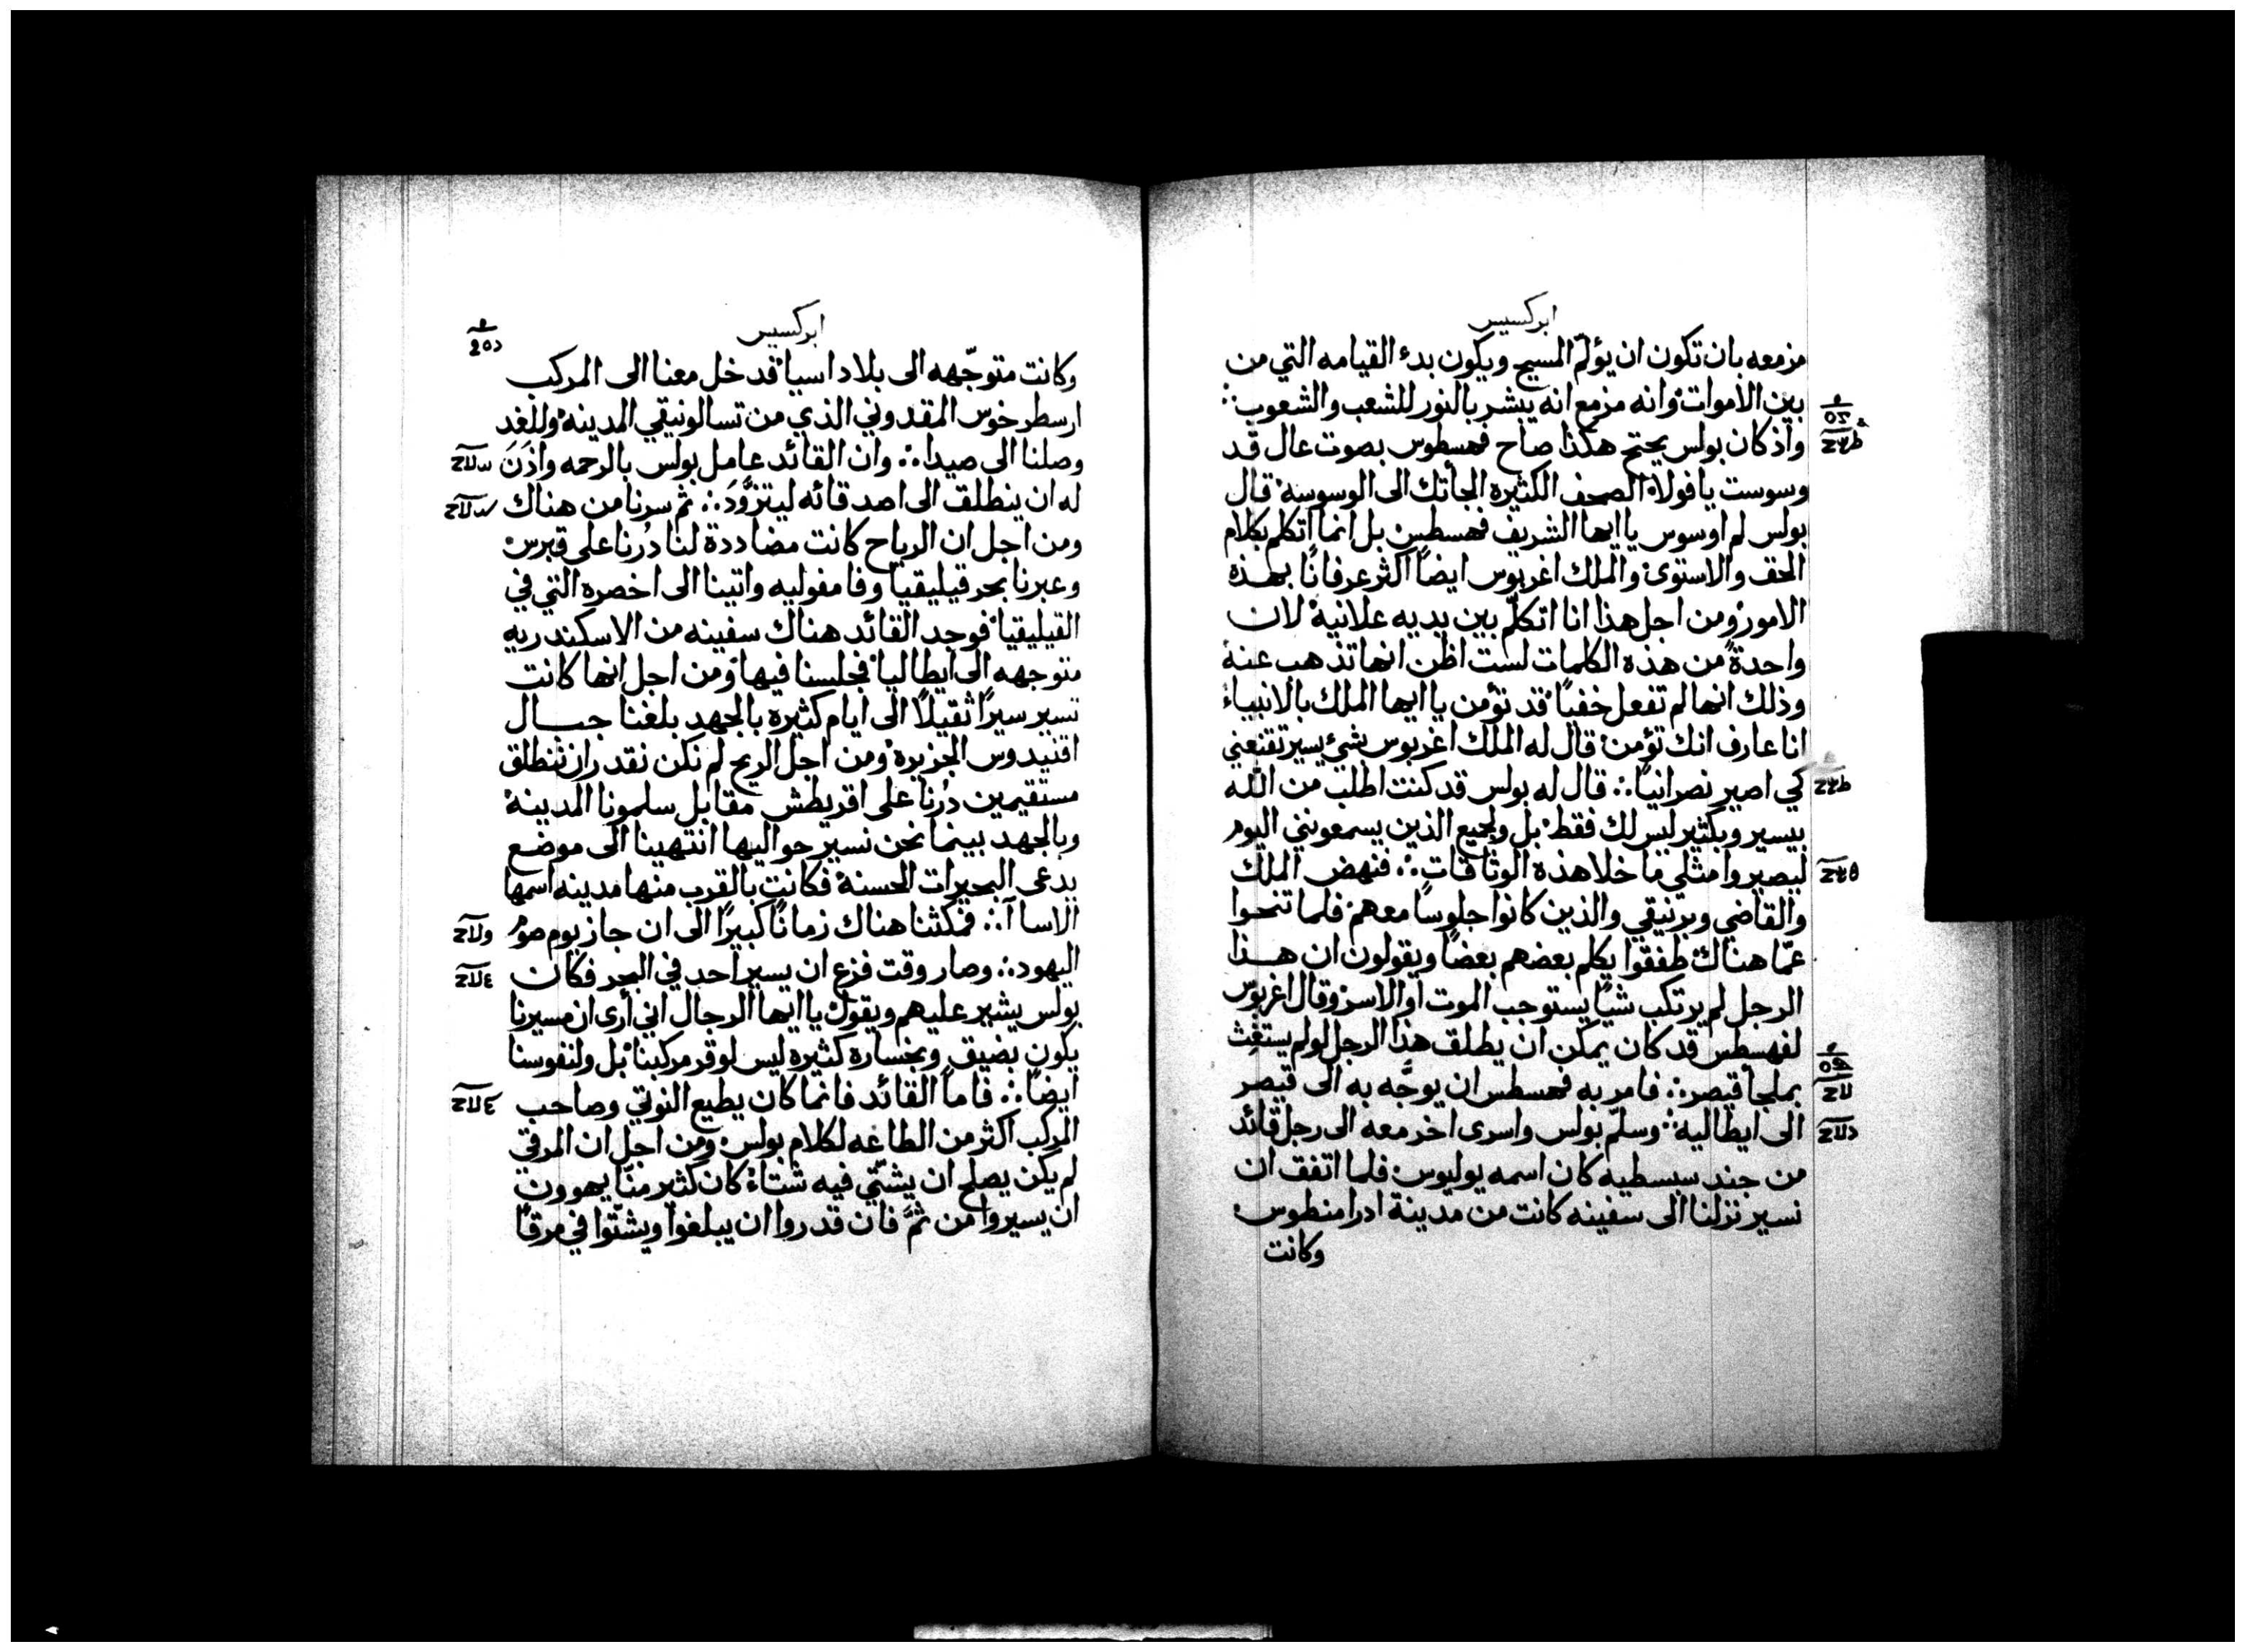 ابركسيس
مزمعه بان تكون ان يؤلّم المسيح ويكون بدء القيامه التي من
بين الاموات وانه مزمع انه يبشر بالنور للشعب والشعوب
واذ كان بولس يحتج هكذا صاح فهسطوس بصوت عال قد
وسوست يا فولا الصحف الكثيره الجأتك الى الوسوسة قال
بولس لم اوسوس يا ايها الشريف فهسطس بل انما اتكلم بكلام
الحق والاستوى والملك اغربوس ايضًا اكثر عرفانًا بهذه
الامور ومن اجل هذا انا اتكلّم بين يديه علانية لان
واحدةً من هذه الكلمات لست اظن انها تذهب عنه
وذلك انها لم تفعل خفيًا قد تؤمن يا ايها الملك بالانبياء
انا عارف انك تؤمن قال له الملك اغربوس بشئ يسير تقنعني
كي اصير نصرانيًا قال له بولس قد كنت اطلب من الله
بيسير وبكثير ليس لك فقط بل ولجميع الذين يسمعونني اليوم
ليصيروا مثلي ما خلا هذه الوثاقات فنهض الملك
والقاضي وبرنيقي والذين كانوا جلوسًا معهم فلما تنحوا
عمّا هناك طفقوا يكلم بعضهم بعضًا ويقولون ان هذا
الرجل لم يرتكب شيًا يستوجب الموت او الاسر وقال اغربوس
لفهسطس قد كان يمكن ان يطلق هذا الرجل لو لم يستغث
بملجأ قيصر فامر به فهسطس ان يوجّه به الى قيصر
الى ايطاليه وسلّم بولس واسرى اخر معه الى رجل قائد
من جند سبسطيه كان اسمه يوليوس فلما اتفق ان
نسير نزلنا الى سفينه كانت من مدينة ادرامنطوس
وكانت
ابركسيس
وكانت متوجّهه الى بلاد اسيا قد دخل معنا الى المركب
ارسطرخوس المقدوني الذي من تسالونيقي المدينه وللغد
وصلنا الى صيدا وان القائد عامل بولس بالرحمه واذن
له ان ينطلق الى اصدقائه ليتزوّد ثم سرنا من هناك
ومن اجل ان الرياح كانت مضاددة لنا دُرنا على قبرس
وعبرنا بحر قيليقيا وفامفوليه واتينا الى اخصره التي في
القيليقيا فوجد القائد هناك سفينه من الاسكندريه
متوجهه الى ايطاليا فجلسنا فيها ومن اجل انها كانت
تسير سيرًا ثقيلًا الى ايام كثيره بالجهد بلغنا جبال
اقنيدوس الجزيره ومن اجل الريح لم نكن نقدر ان ننطلق
مستقيمين دُرنا على اقريطش مقابل سلمونا المدينة
وبالجهد بينما نحن نسير حواليها انتهينا الى موضع
يدعى البحيرات الحسنة فكانت بالقرب منها مدينه اسمها
الاسا آ فمكثنا هناك زمانًا كبيرًا الى ان جاز يوم صوم
اليهود وصار وقت فزع ان يسير احد في البحر فكان
بولس يشير عليهم ويقول يا ايها الرجال اني أرى ان مسيرنا
يكون بضيق وبخساره كثيره ليس لوقر مركبنا بل ولنفوسنا
ايضًا فاما القائد فانما كان يطيع النوتي وصاحب
المركب اكثر من الطاعه لكلام بولس ومن اجل ان المرقى
لم يكن يصلح ان يشتّي فيه شتاءً كان كثير منّا يهوون
ان يسيروا من ثمّ فان قدروا ان يبلغوا ويشتّوا في مرقًا